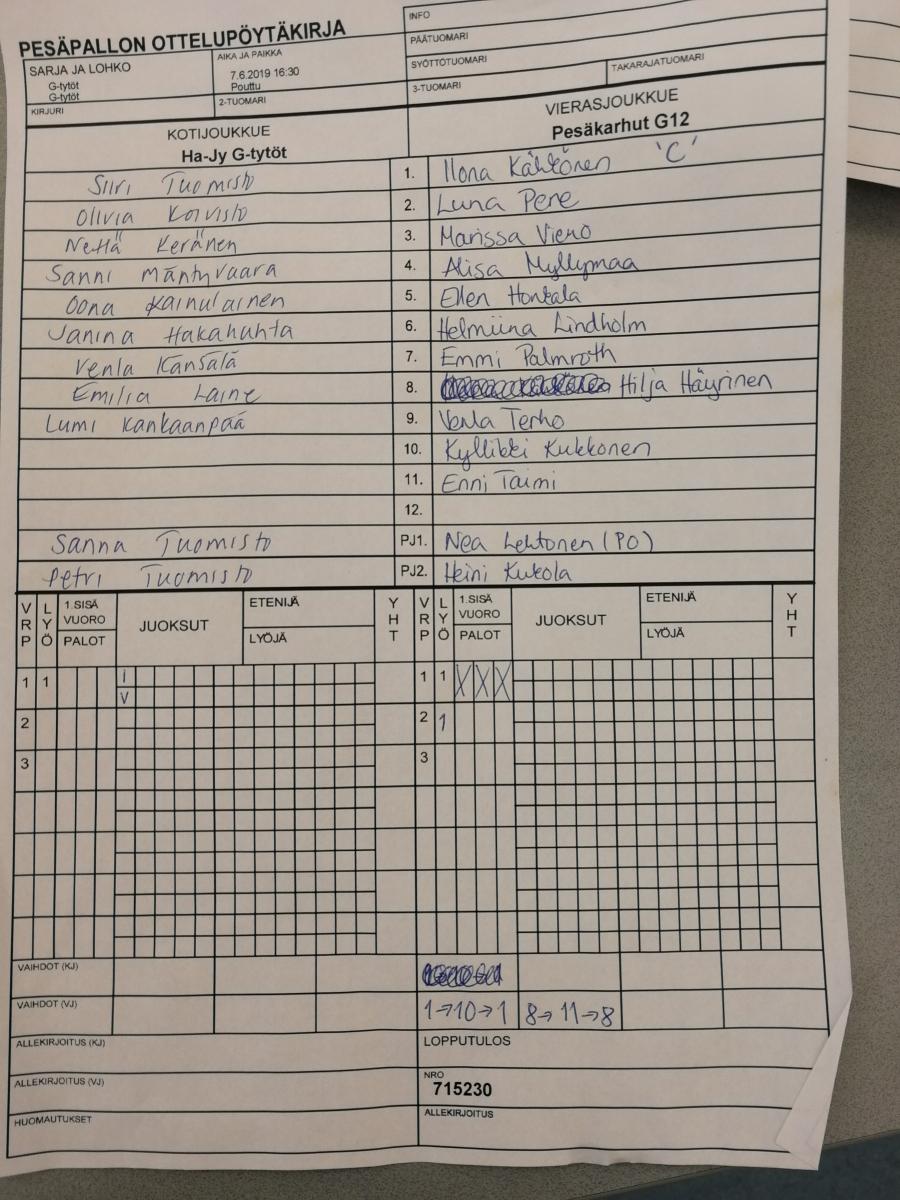 PESÄPALLON OTTELUPÖYTÄKIRJA
INFO
PÄÄTUOMARI
SARJA JA LOHKO
G-tytöt
G-tytöt
AIKA JA PAIKKA
7.6.2019 16:30
Pouttu
SYÖTTÖTUOMARI
KIRJURI
2-TUOMARI
3-TUOMARI
TAKARAJATUOMARI
KOTIJOUKKUE
Ha-Jy G-tytöt
VIERASJOUKKUE
Pesäkarhut G12
Siiri Tuomisto 1. Ilona Kähkönen 'C'
Olivia Koivisto 2. Luna Pene
Nettä Keränen 3. Marissa Viero
Sanni Mäntyvaara 4. Alisa Myllymaa
Oona Kainulainen 5. Ellen Honkala
Janina Hakahuhta 6. Helmiina Lindholm
Venla Kansala 7. Emmi Palmroth
Emilia Laine 8. Hilja Häyrinen
Lumi Kankaanpää 9. Venla Terho
10. Kyllikki Kukkonen
11. Enni Taimi
12.
Sanna Tuomisto PJ1. Nea Lehtonen (PO)
Petri Tuomisto PJ2. Heini Kukola
VRP LYÖ 1.SISÄ VUORO PALOT JUOKSUT ETENIJÄ LYÖJÄ YHT VRP LYÖ 1.SISÄ VUORO PALOT JUOKSUT ETENIJÄ LYÖJÄ YHT
1 1 I V 1 1 X X X
2 2 1
3 3
VAIHDOT (KJ)
VAIHDOT (VJ) 1→10→1 8→11→8
ALLEKIRJOITUS (KJ) LOPPUTULOS
ALLEKIRJOITUS (VJ) NRO
715230
HUOMAUTUKSET ALLEKIRJOITUS